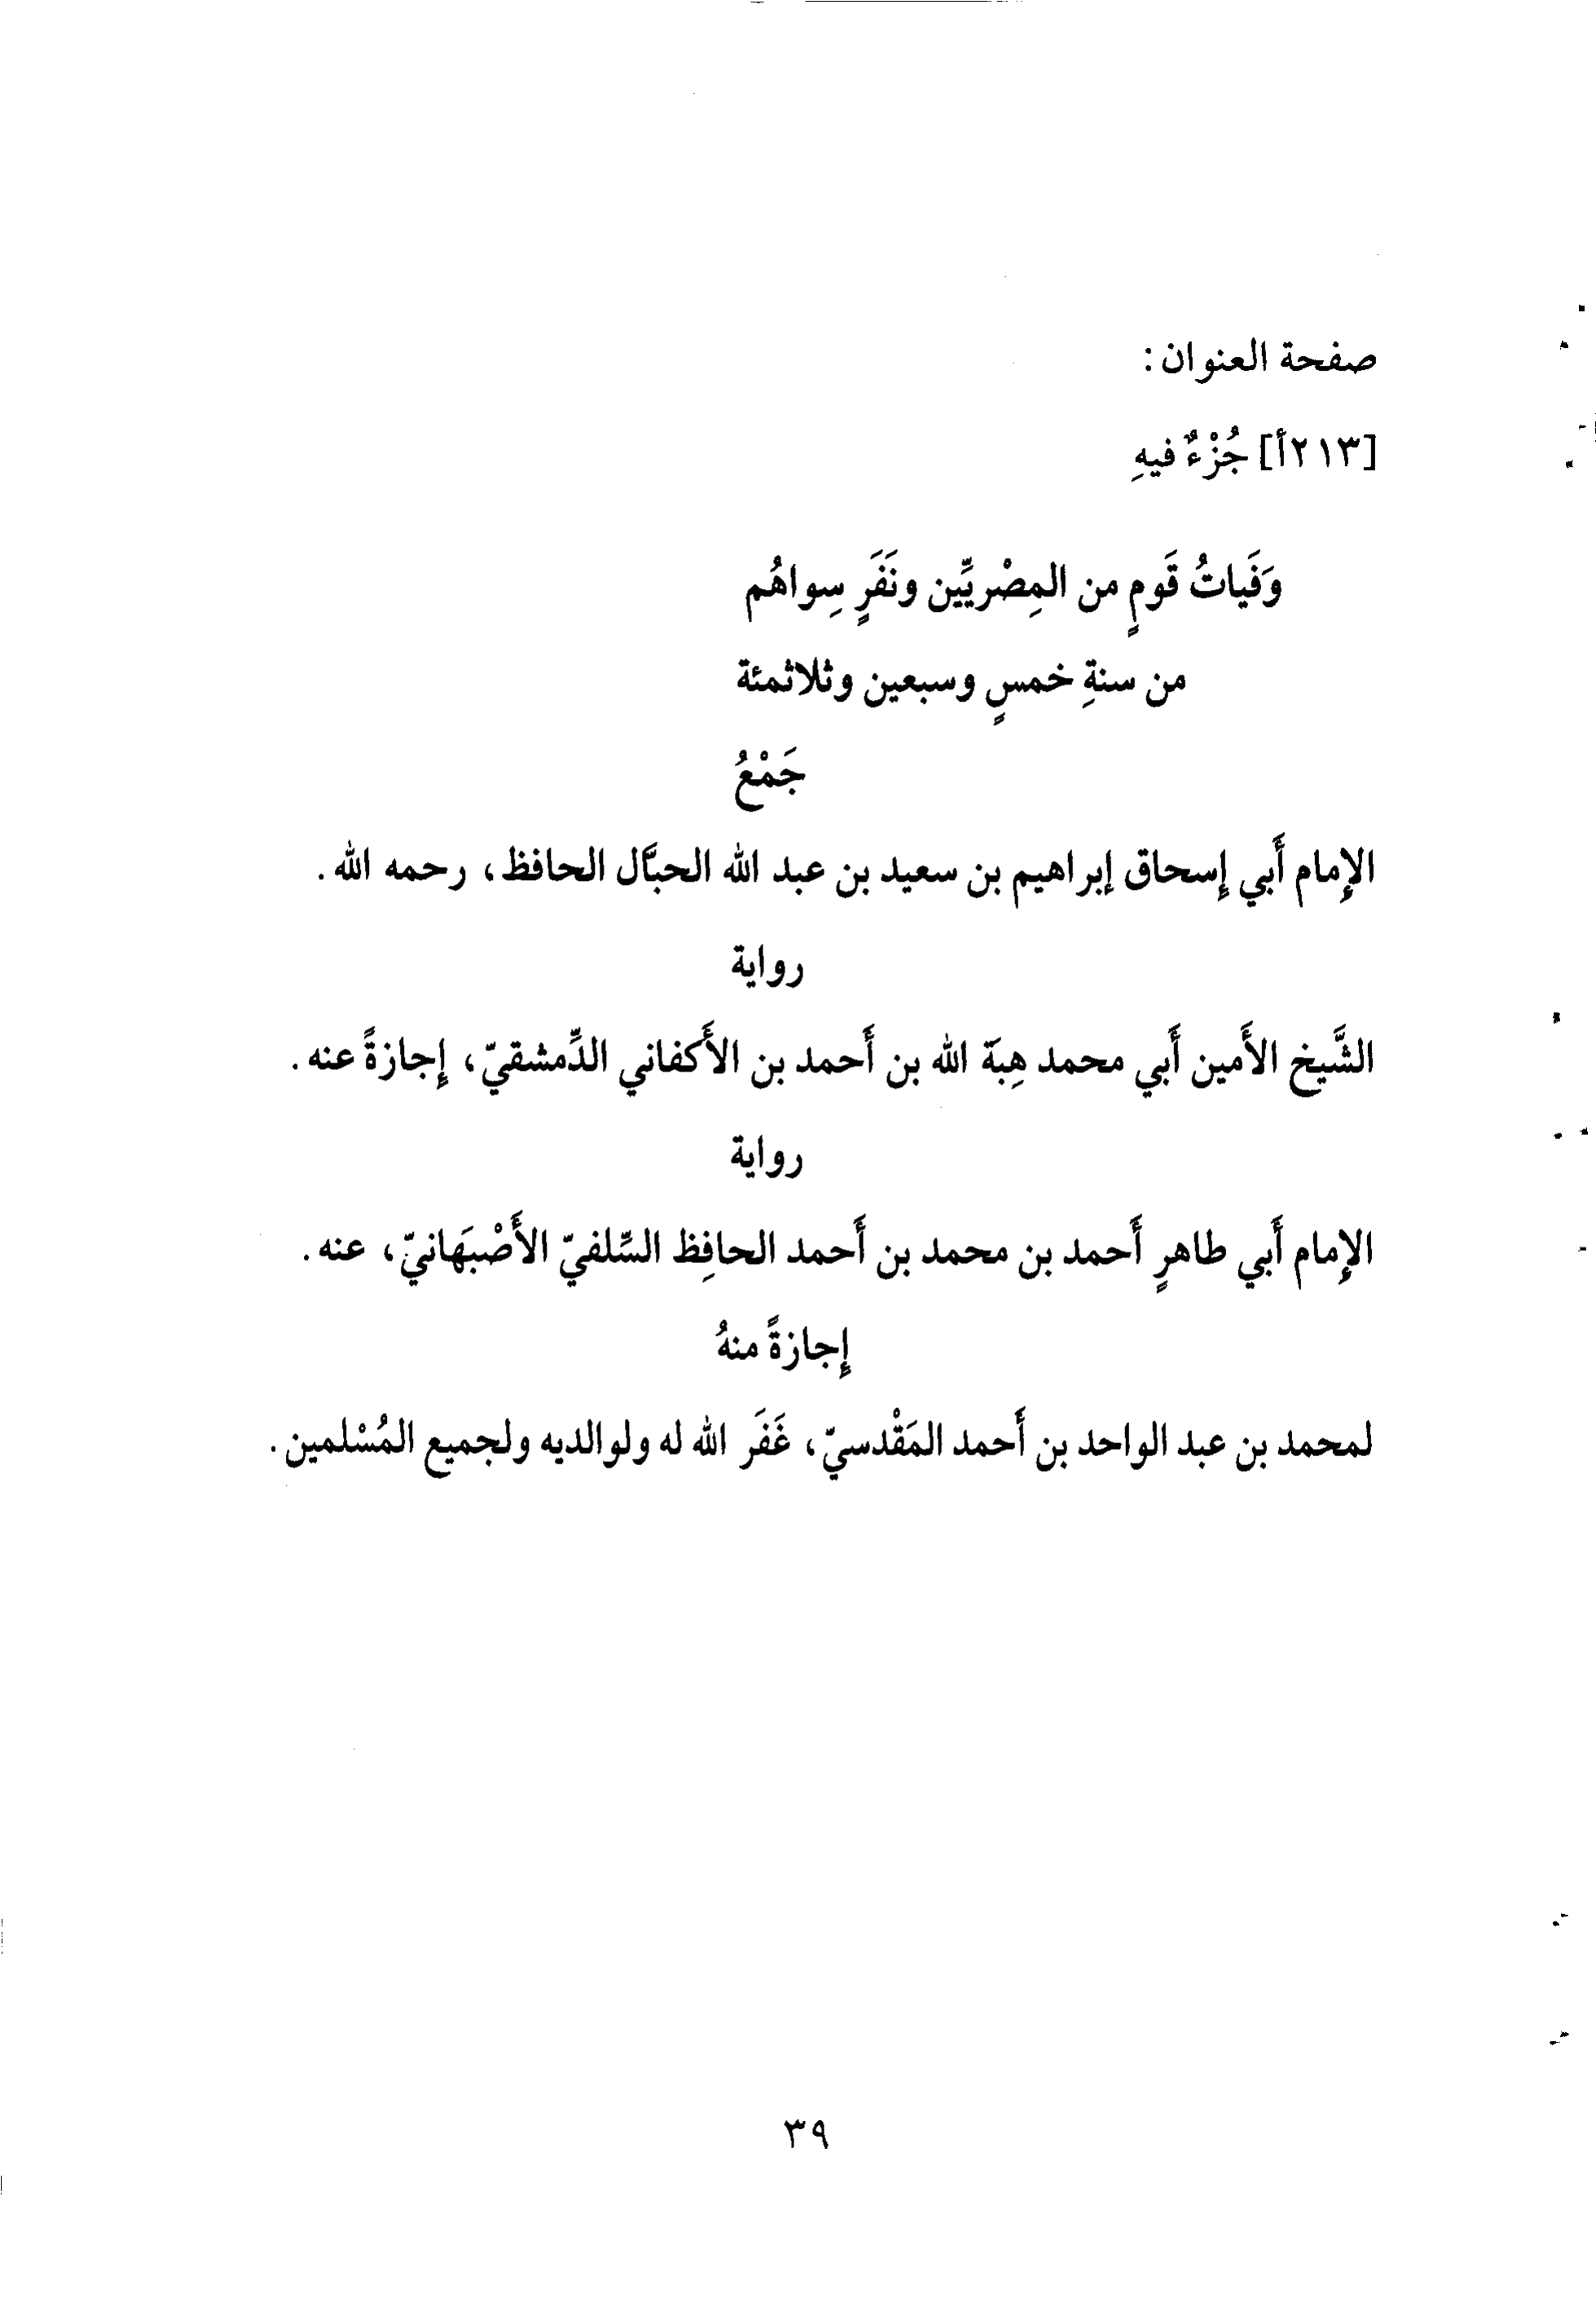 صفحة العنوان :
[٢١٣أ] جُزْءٌ فيهِ
وَفَياتُ قَومٍ من المِصْريِّين ونَفَرٍ سِواهُم
من سنةِ خمسٍ وسبعين وثلاثمئة
جَمْعُ
الإِمام أَبي إِسحاق إبراهيم بن سعيد بن عبد الله الحبَّال الحافظ، رحمه الله.
رواية
الشَّيخ الأَمين أَبي محمد هِبَة الله بن أَحمد بن الأَكفاني الدِّمشقيّ، إِجازةً عنه.
رواية
الإِمام أَبي طاهرٍ أَحمد بن محمد بن أَحمد الحافِظ السِّلفيّ الأَصْبَهانيّ، عنه.
إِجازةً منهُ
لمحمد بن عبد الواحد بن أَحمد المَقْدسيّ، غَفَر الله له ولوالديه ولجميع المُسْلمين.
٣٩